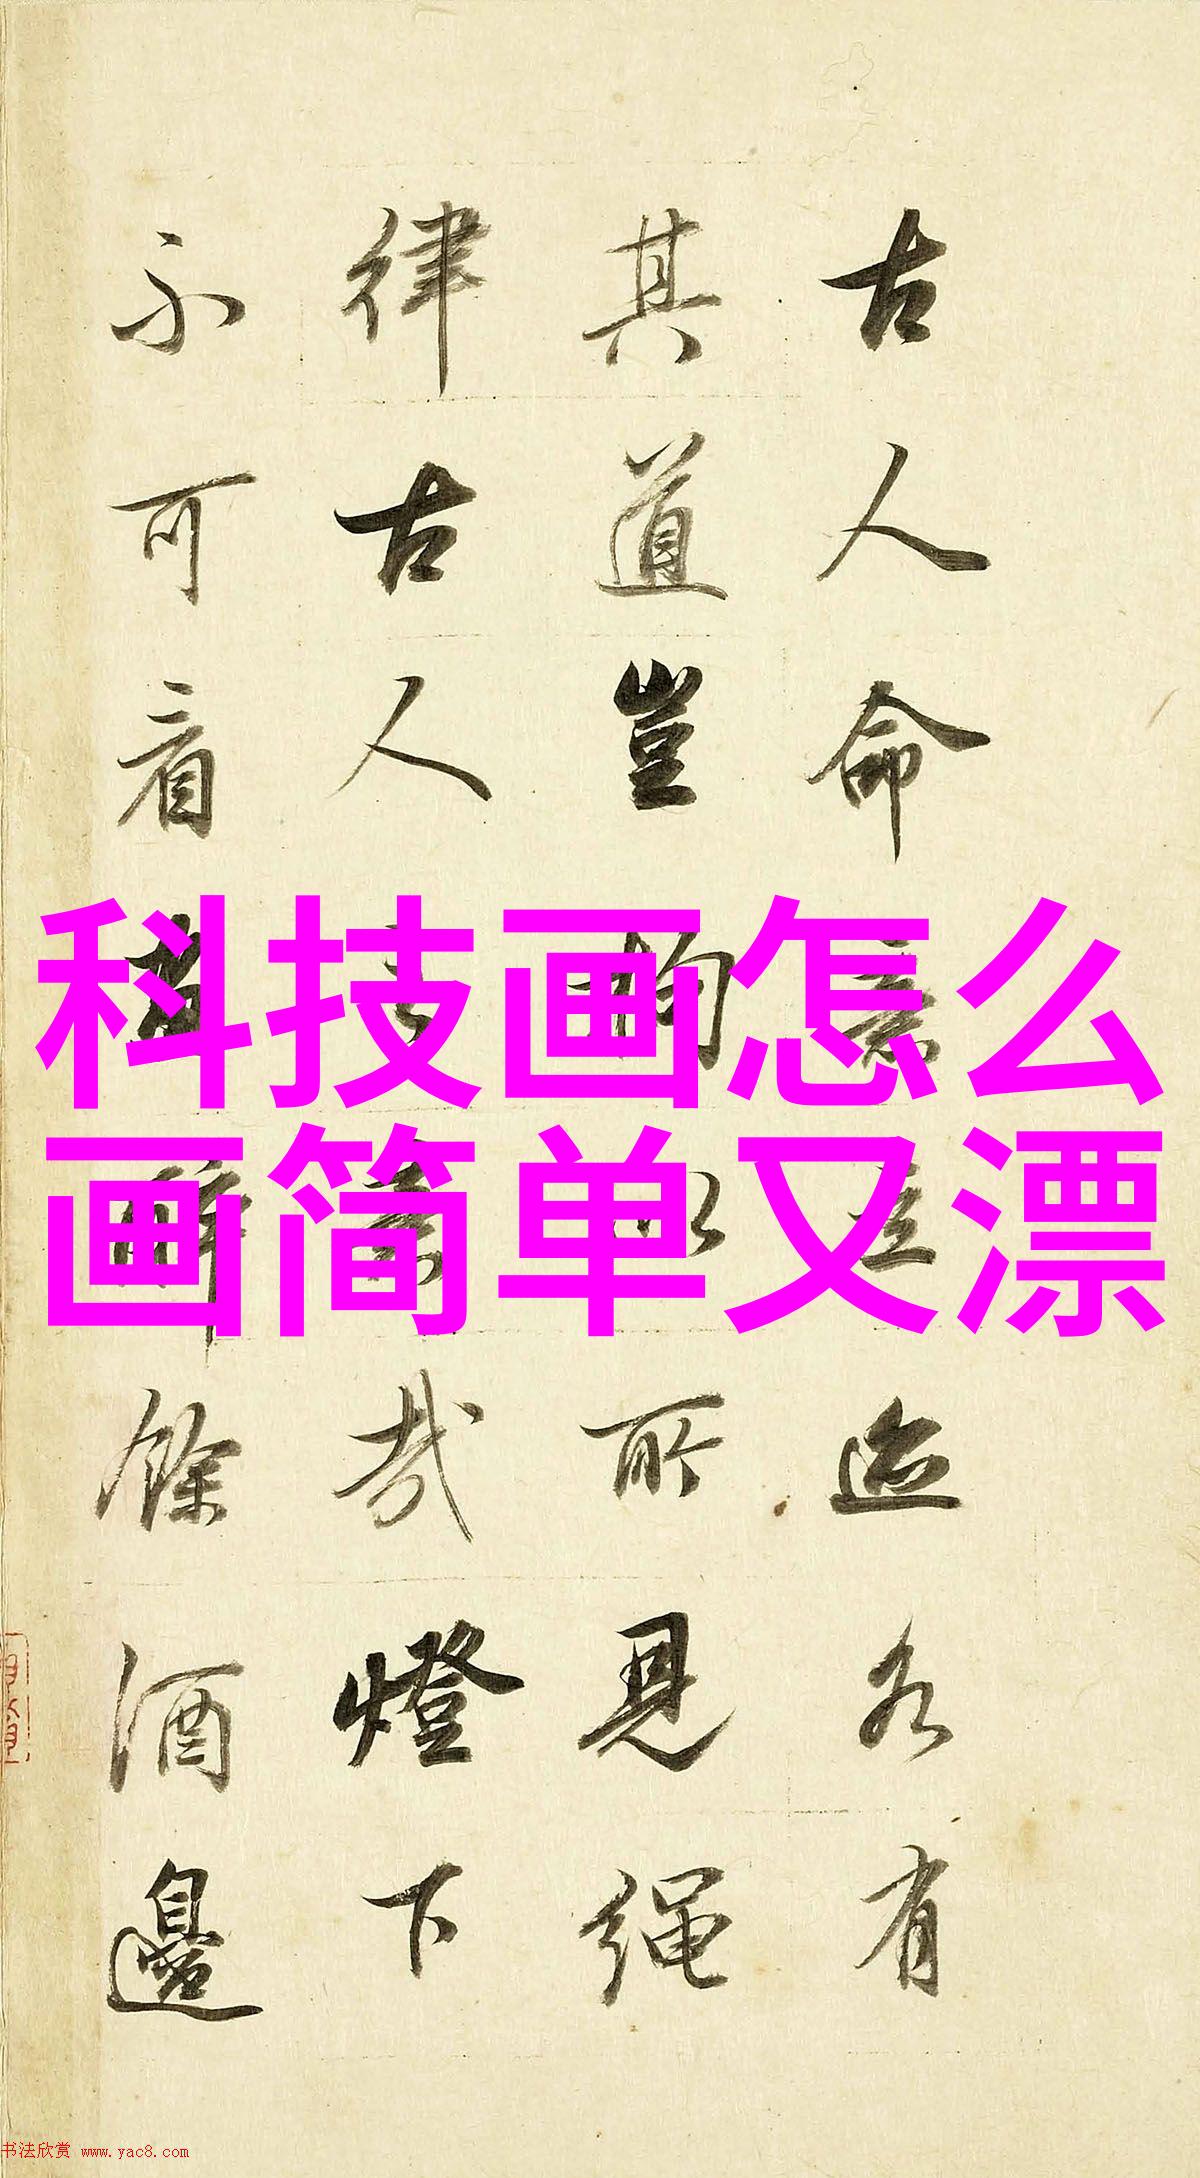 古人命意立迹各有
其道豈拘以所見繩
律古人
哉燈下
不可看
餘酒邊
科技画怎么
画简单又漂
书法欣赏 www.yac8.com